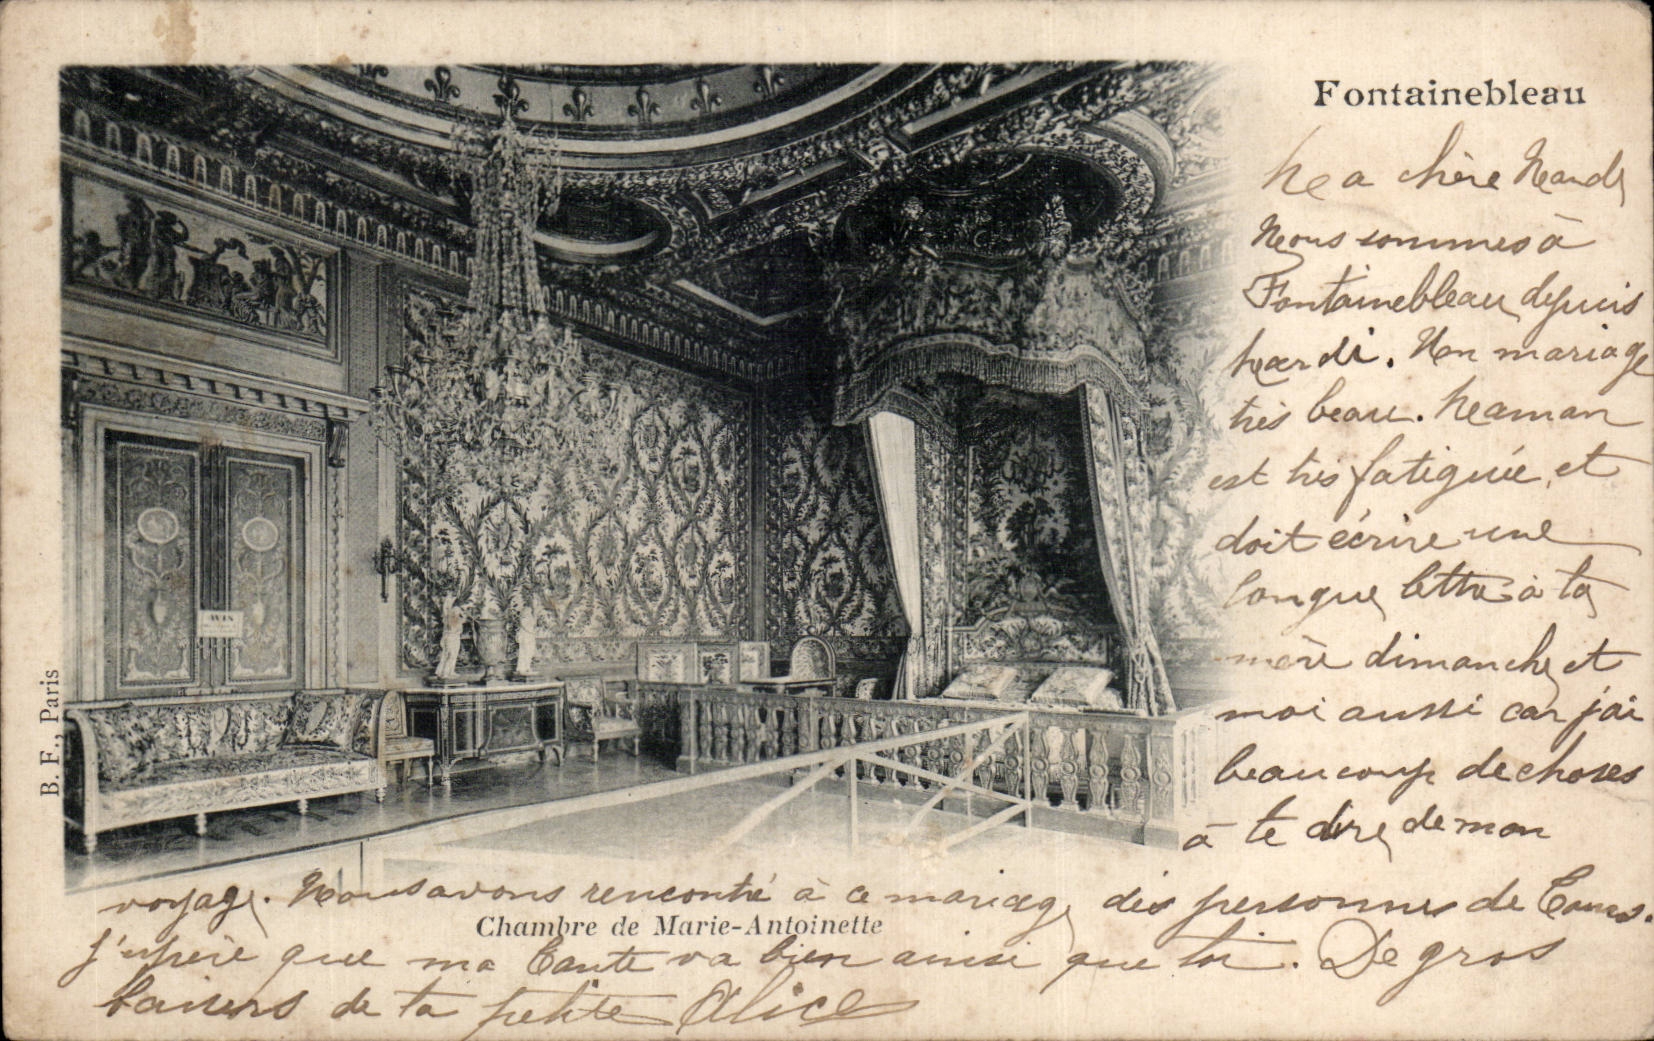 Fontainebleau
Ma chère
Nous sommes à
Fontainebleau depuis
mardi. Mon mariage
très beau. Maman
est très fatiguée, et
doit écrire une
longue lettre à ta
mère dimanche et
moi aussi car j'ai
beaucoup de choses
à te dire de mon
voyage. Nous avons rencontré à ce mariage des personnes de Tours.
Chambre de Marie-Antoinette
j'espère que ma tante va bien ainsi que toi. De gros
baisers de ta petite Alice
B. F., Paris
AVIS